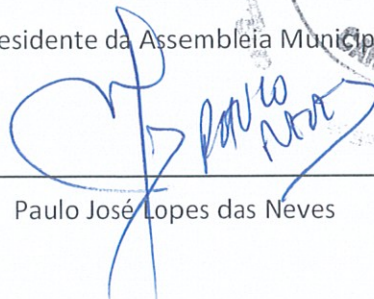 esidente da Assembleia Municip
PAULO
NEVES
Paulo José Lopes das Neves